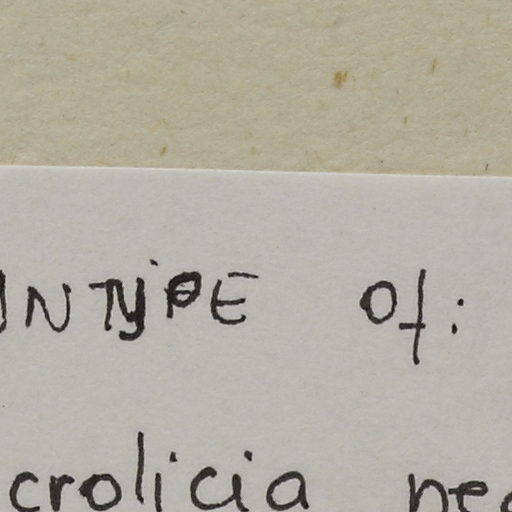 NTYPE Of:
crolicia ne